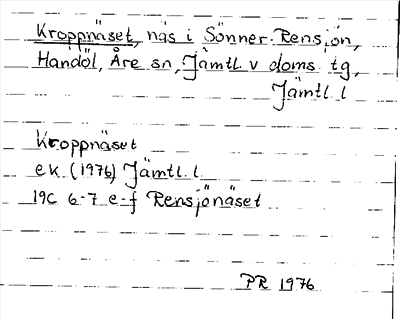 Kroppnäset, näs i Sönner-Rensjön,
Handöl, Åre sn, Jämtl. v doms. tg,
Jämtl. l
Kroppnäset
ek. (1976) Jämtl. l.
19C 6-7 e-f Rensjönäset
PR 1976